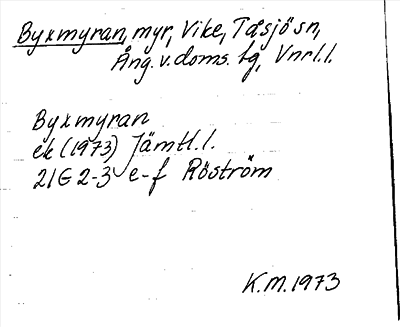 Byxmyran, myr, Vike, Tåsjö sn,
Ång. v. doms. lg, Vnrl.l.
Byxmyran
ek (1973) Jämtl.l.
21G 2-3 e-f Röström
K.M. 1973